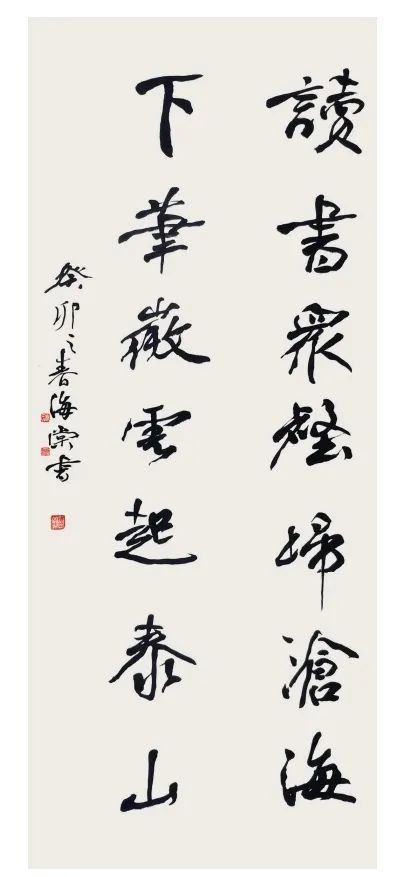 讀書衆壑歸滄海
下筆微雲起泰山
癸卯之春海棠書